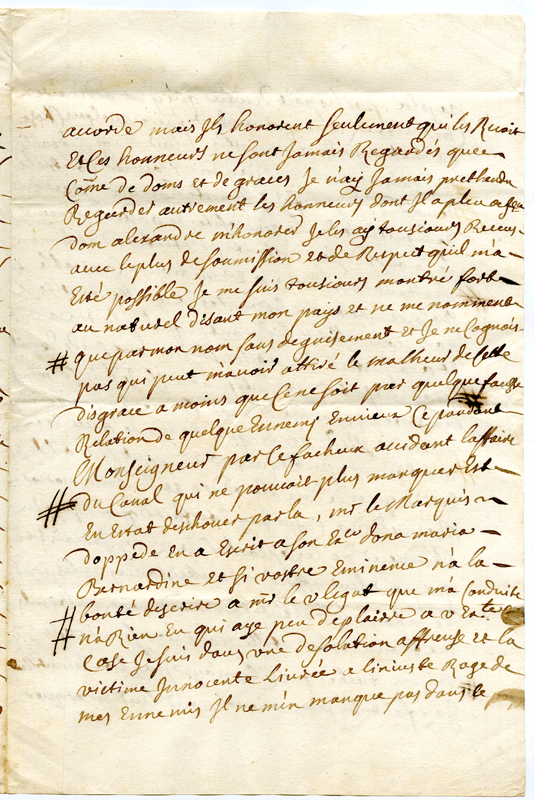 acorde mais Jls honorent seulement qui les Recoit
Et Ces honneurs ne sont Jamais Regardés que
Cōme de doms et de graces Je n'ay Jamais prethandu
Regarder autrement les honneurs dont Jl a pleu a
dom alexandre m'honorer Je les ay tousiours Receus
avec le plus de soumission et de Respect qu'il m'a
Esté possible Je me suis tousiours montré fort
au naturel disant mon pays et ne me nomment
# que par mon nom sans deguisement et Je ne Cognois
pas qui peut m'avoir attiré le malheur de Cette
disgrace a moins que Ce ne soit par quelque fausse
Relation de quelque Ennemi Envieux Cepandant #
Monseigneur par Ce facheux accident l'affaire
# du Canal qui ne pouvait plus manquer Est
En Estat deschouer par la, mr le Marquis
doppede En a Escrit a son Exce dona maria
Bernardine Et si vostre Eminence n'a la
# bonté descrire a mr le v legat que ma Conduite
n'a Rien Eu qui aye peu deplaire a v Exce
Case Je suis dans une desolation affreuse et la
victime Innocente Livrée a l'iniuste Rage de
mes Ennemis Jl ne m'en manque pas dans le